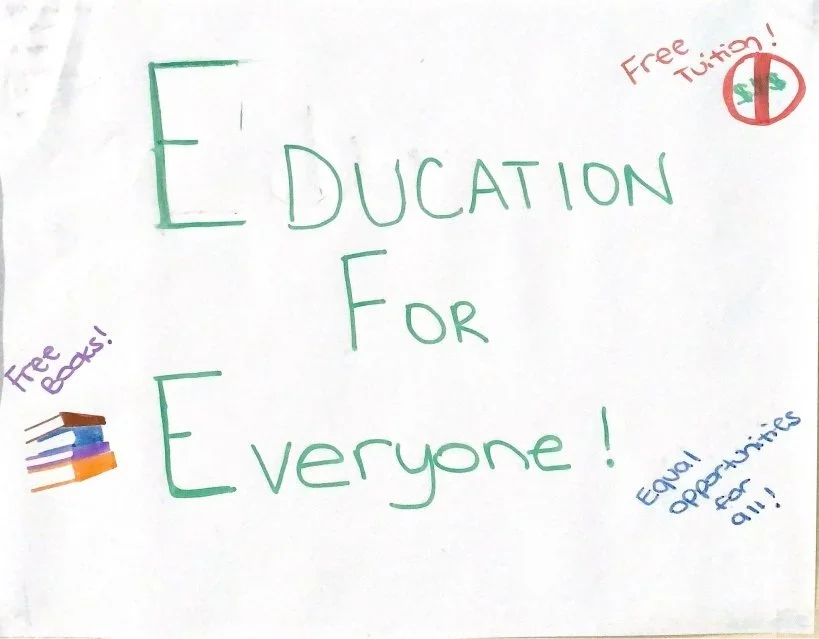 Free
Tuition!
$$$
EDUCATION
FOR
Everyone!
Free
Books!
Equal
opportunities
for
all!